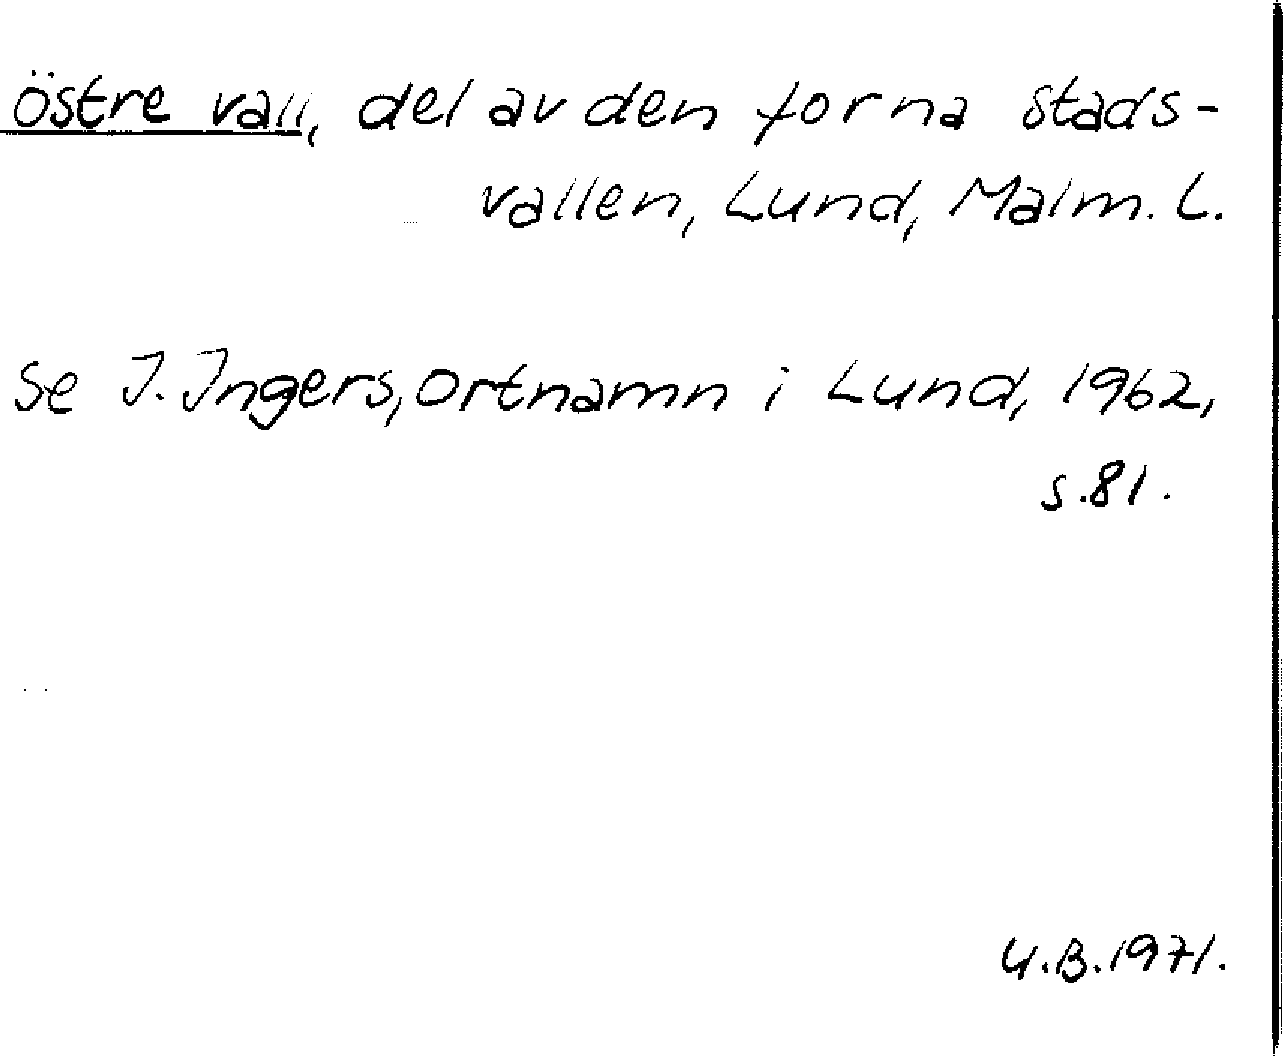 östre vall, del av den forna stads-
vallen, Lund, Malm. L.
Se I. Ingers, Ortnamn i Lund, 1962,
s. 81.
U.B. 1971.